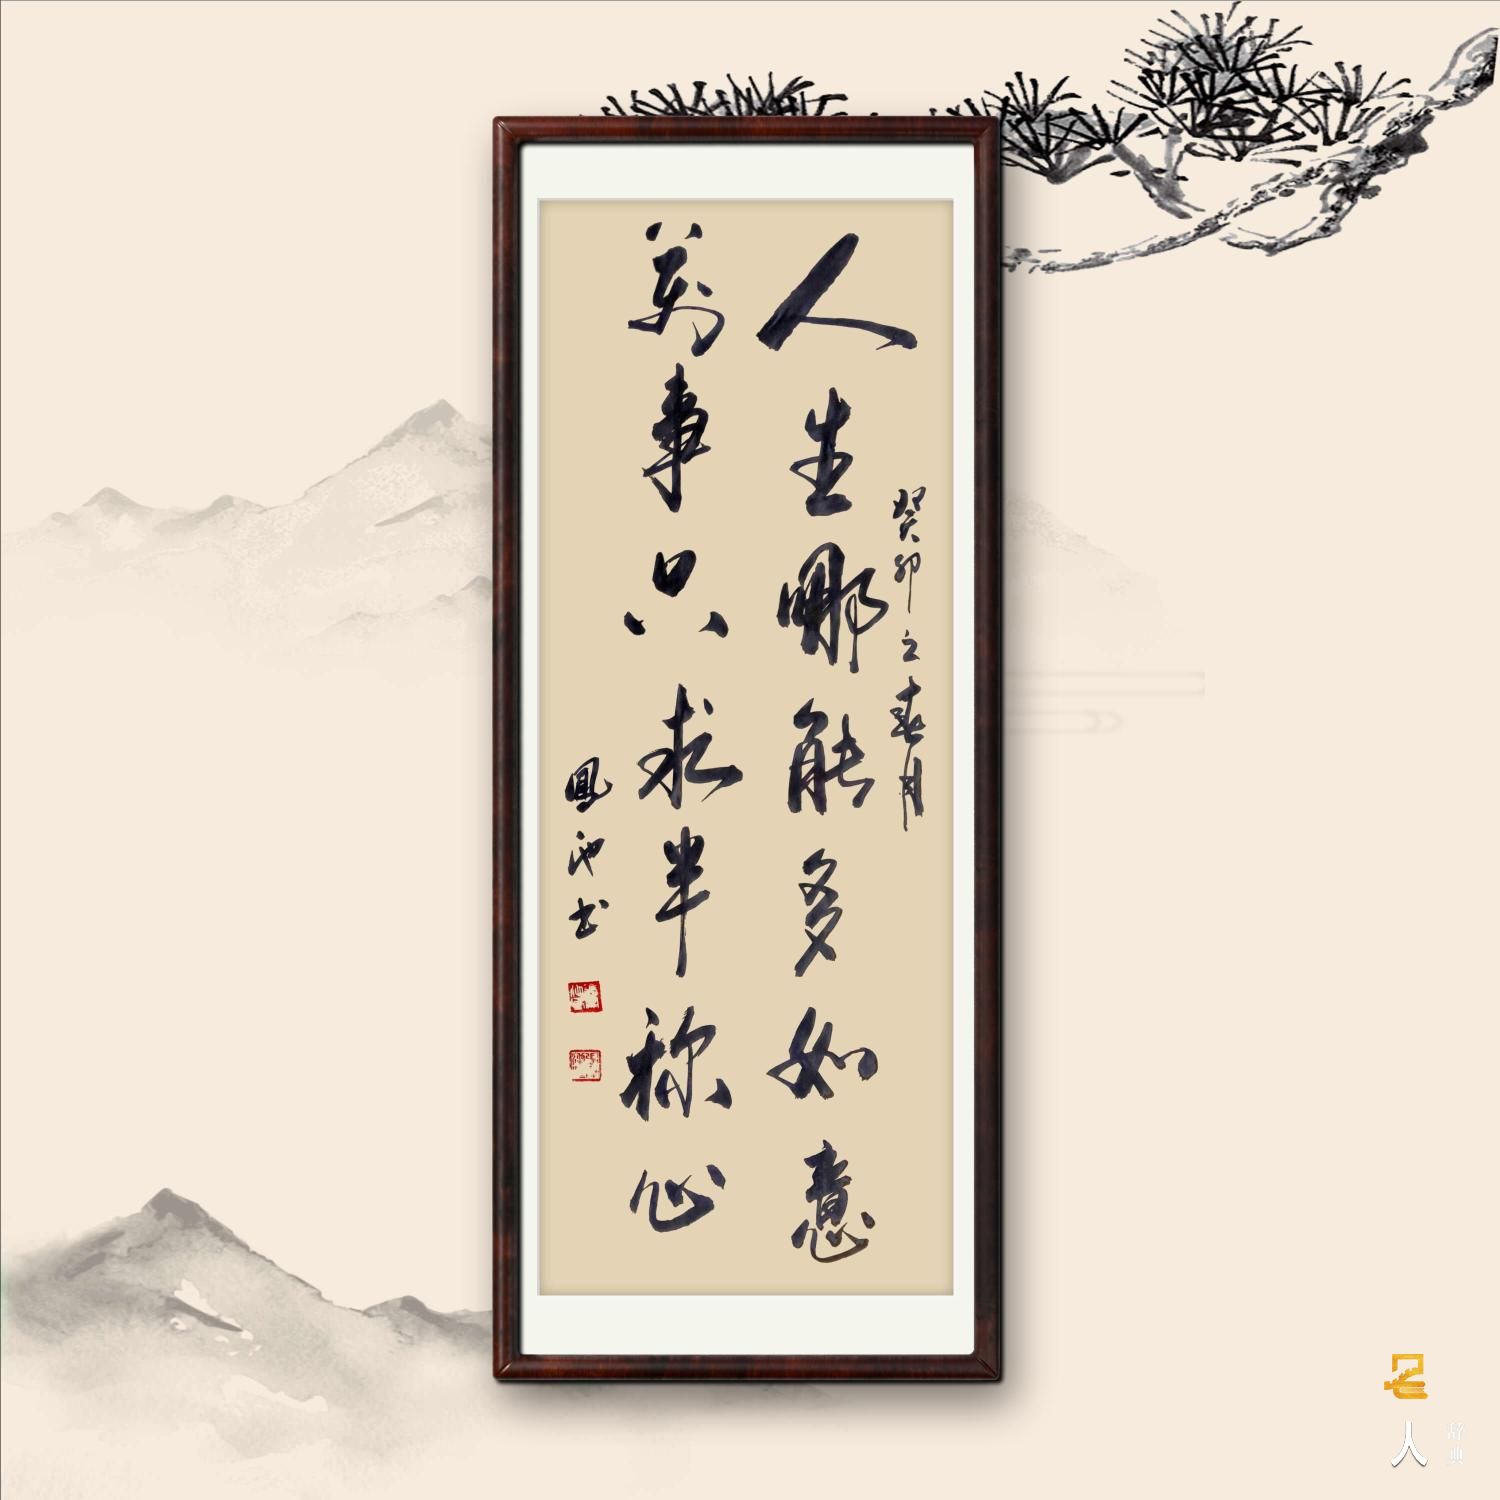 癸卯之春月
人生哪能多如意
萬事只求半称心
鳳池书
名人
辞典